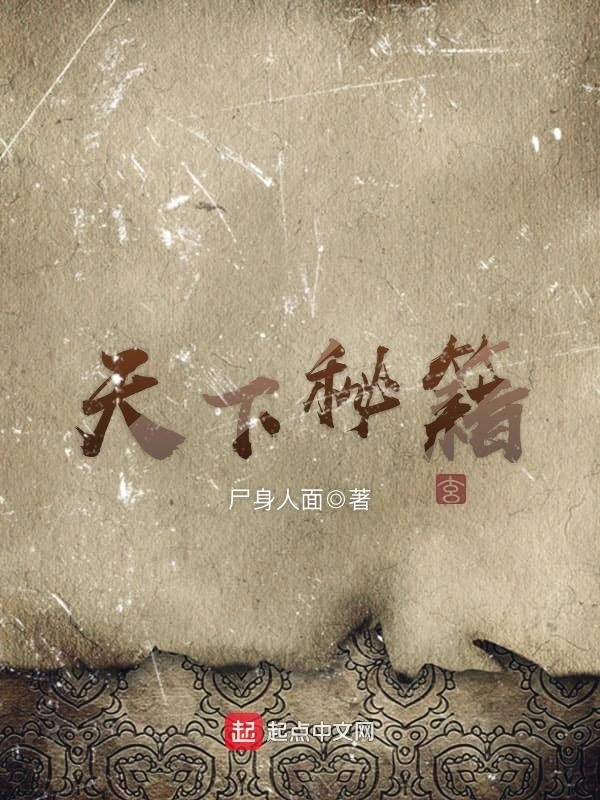 天下秘籍
尸身人面◎著
玄
起 起点中文网